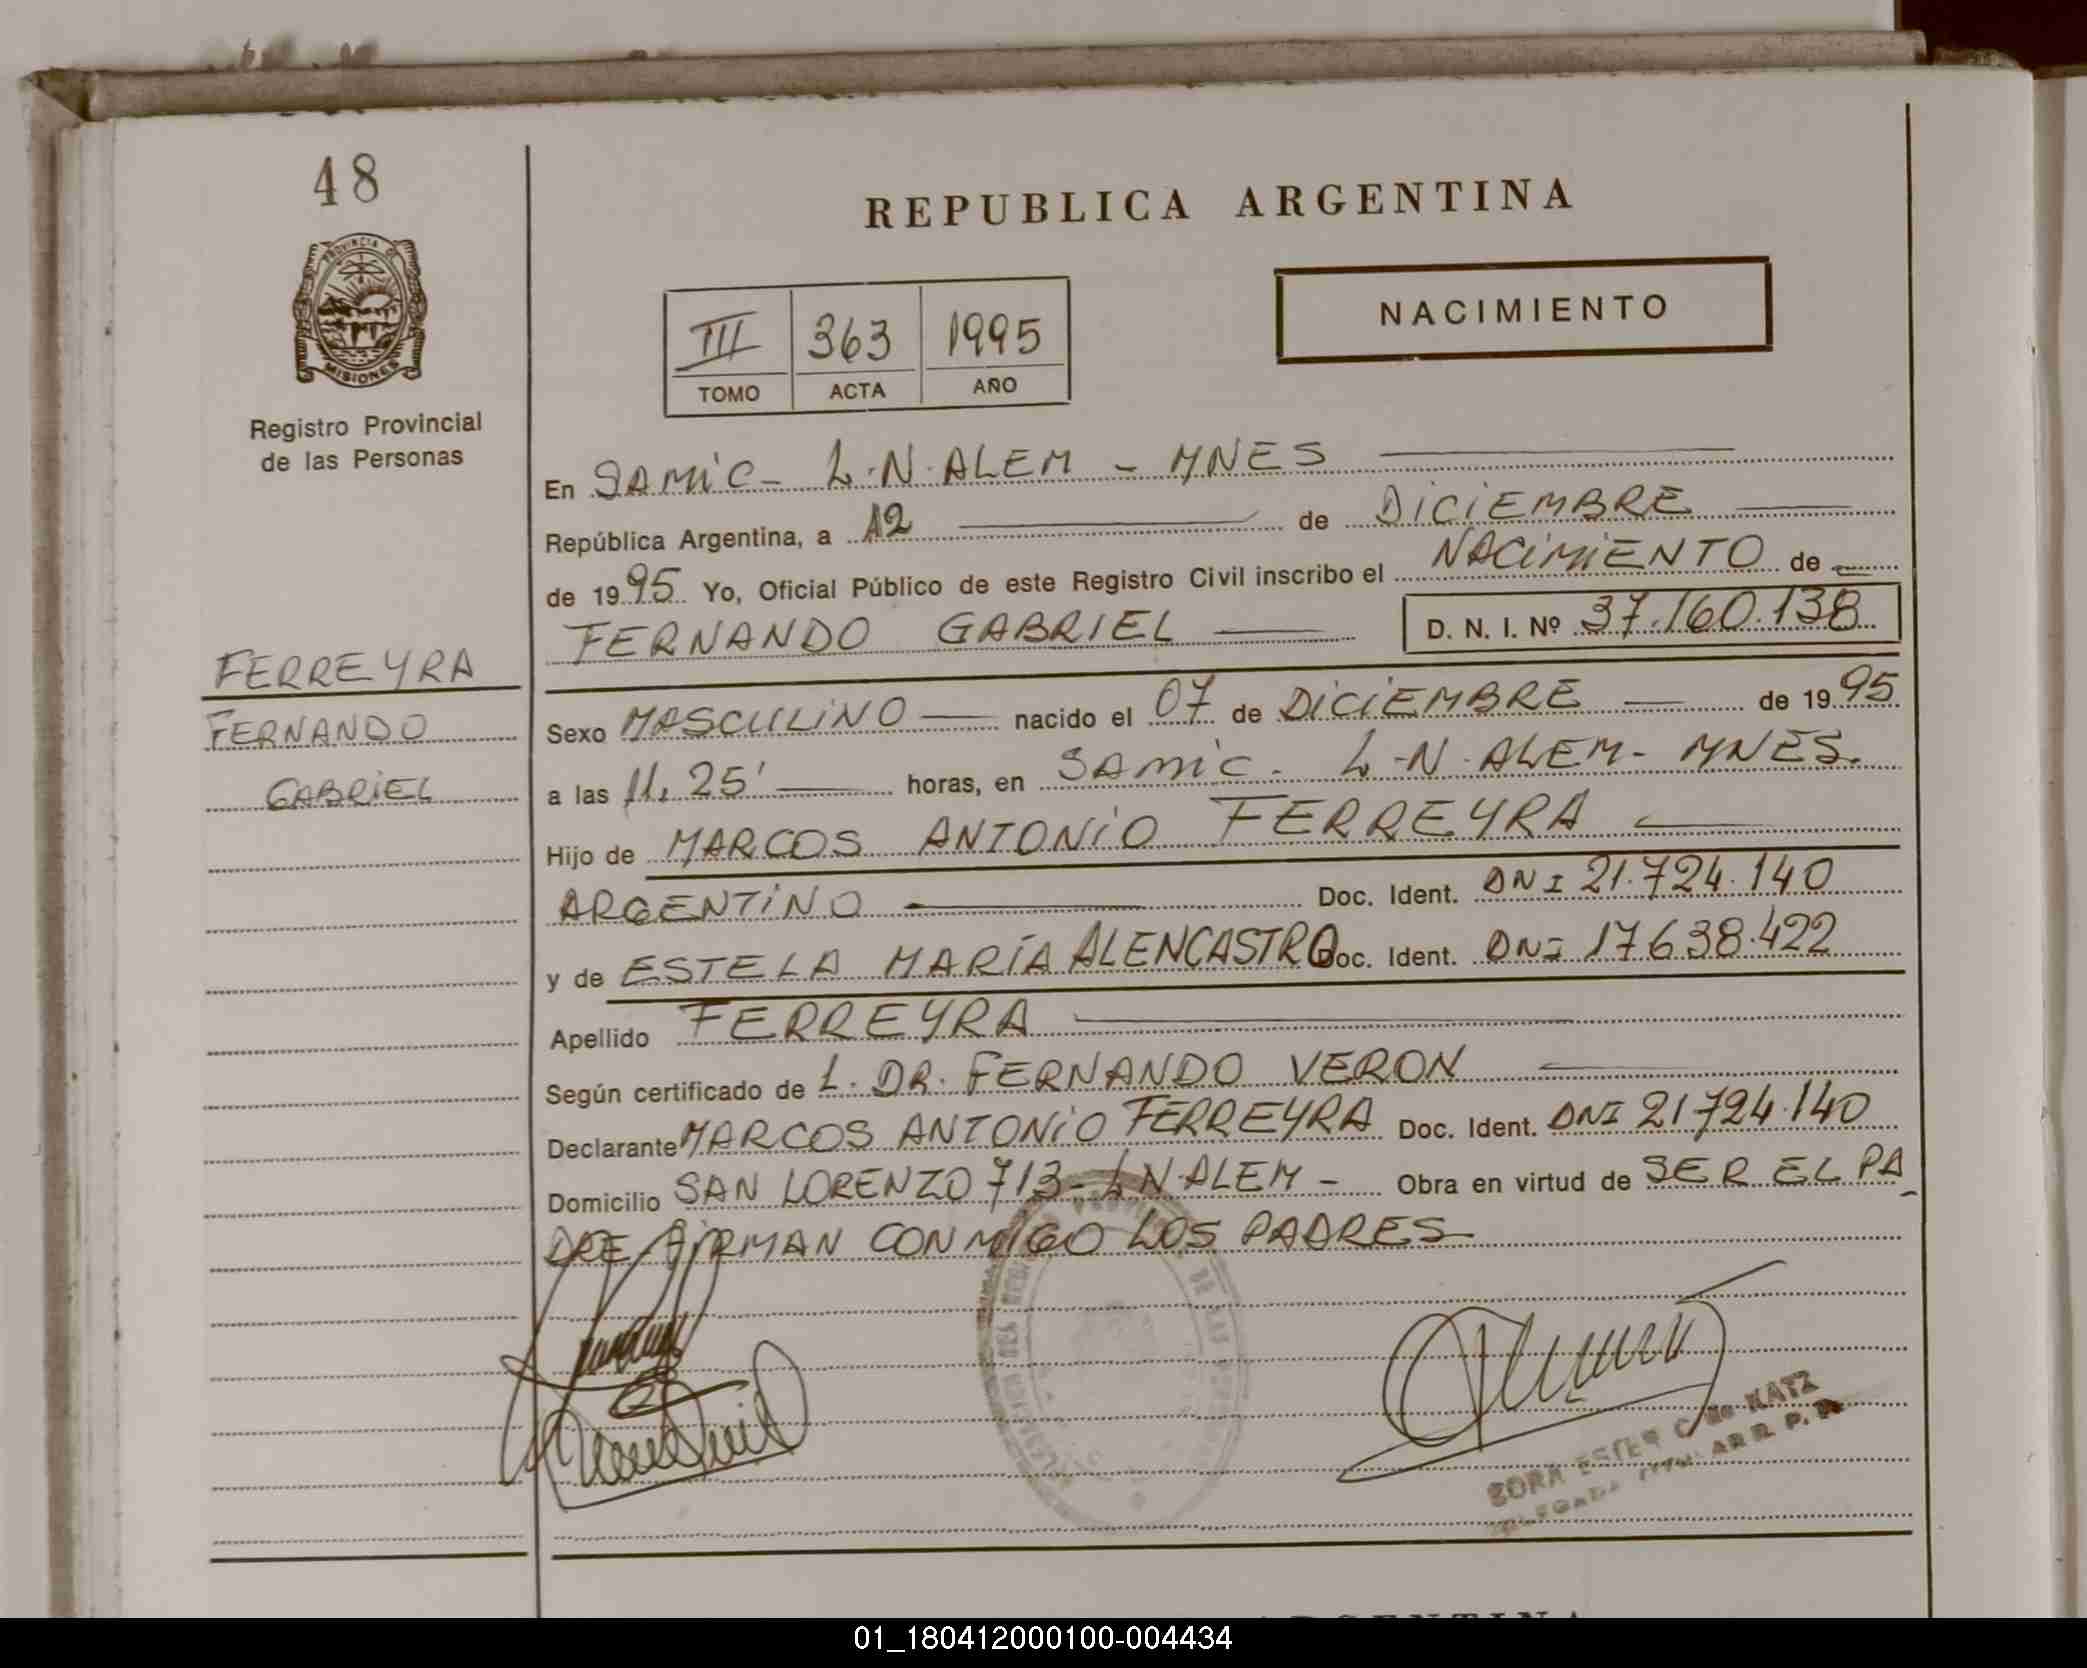 48
REPUBLICA ARGENTINA
PROVINCIA DE
MISIONES
Registro Provincial
de las Personas
NACIMIENTO
III 363 1995
TOMO ACTA AÑO
En SAMIC - L.N. ALEM - MNES
República Argentina, a 12 de DICIEMBRE
de 1995 Yo, Oficial Público de este Registro Civil inscribo el NACIMIENTO de
FERNANDO GABRIEL D. N. I. Nº 37.160.138
FERREYRA
FERNANDO
GABRIEL
Sexo MASCULINO nacido el 07 de DICIEMBRE de 1995
a las 11,25' horas, en SAMIC. L.N. ALEM - MNES.
Hijo de MARCOS ANTONIO FERREYRA
ARGENTINO Doc. Ident. DNI 21.724.140
y de ESTELA MARÍA ALENCASTRO Doc. Ident. DNI 17.638.422
Apellido FERREYRA
Según certificado de L. DR. FERNANDO VERON
Declarante MARCOS ANTONIO FERREYRA Doc. Ident. DNI 21.724.140
Domicilio SAN LORENZO 713 - L.N. ALEM - Obra en virtud de SER EL PA
DRE FIRMAN CONMIGO LOS PADRES
ESTER C. KATZ
01_180412000100-004434